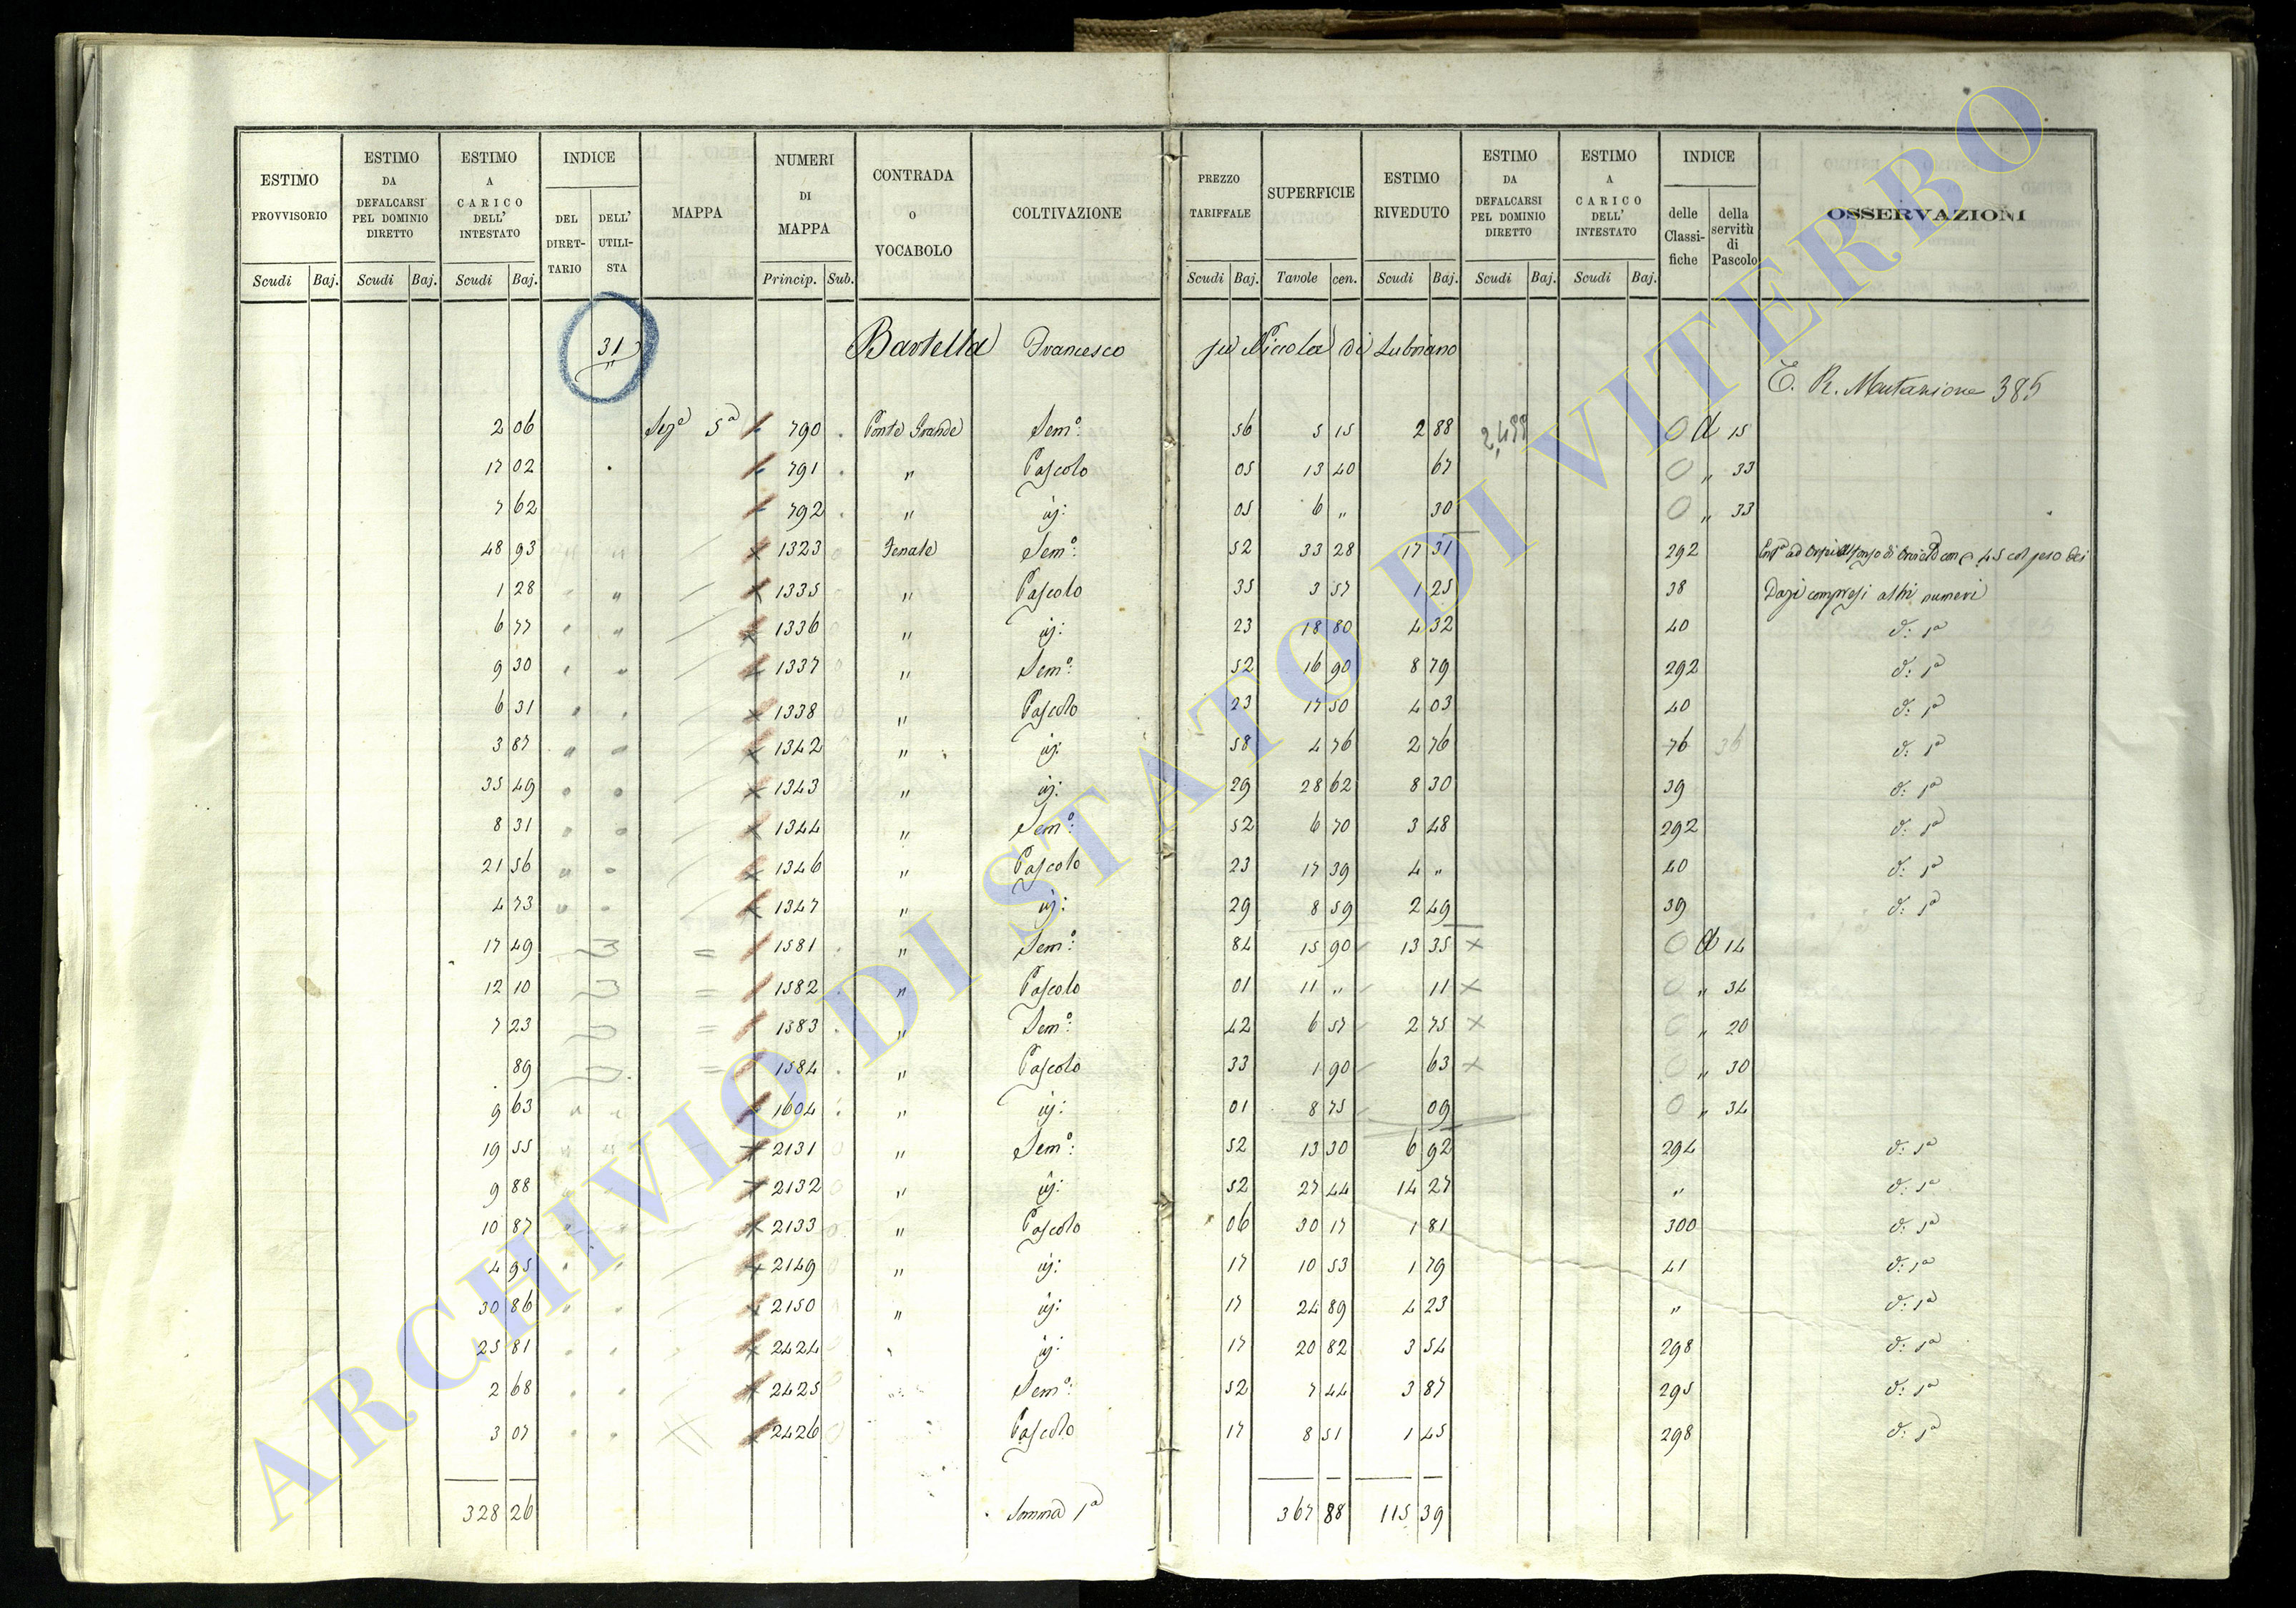 ESTIMO PROVVISORIO | ESTIMO DA DEFALCARSI PEL DOMINIO DIRETTO | ESTIMO A CARICO DELL' INTESTATO | INDICE DEL DIRETTARIO | DELL' UTILISTA | MAPPA | NUMERI DI MAPPA | CONTRADA o VOCABOLO | COLTIVAZIONE | PREZZO TARIFFALE | SUPERFICIE | ESTIMO RIVEDUTO | ESTIMO DA DEFALCARSI PEL DOMINIO DIRETTO | ESTIMO A CARICO DELL' INTESTATO | INDICE delle Classifiche | della servitù di Pascolo | OSSERVAZIONI
Scudi Baj. | Scudi Baj. | Scudi Baj. | Princip. Sub. | Scudi Baj. | Tavole cen. | Scudi Baj. | Scudi Baj. | Scudi Baj.
31 Bartella Francesco fu Niccola di Lubriano
E. R. Mutazione 385
2 06 Segª 5ª 790 Ponte Grande Semº: 56 5 15 2 88 2,499 0 d 15
17 02 791 " Pascolo 05 13 40 67 0 " 33
7 62 792 " iij: 05 6 " 30 0 " 33
48 93 1323 Fenale Semº: 52 33 28 17 31 292 45 col peso dei
1 28 1335 " Pascolo 35 3 57 1 25 38 Dazi compresi altri numeri
6 77 1336 " iij: 23 18 80 4 32 40 d: sª
9 30 1337 " Semº: 52 16 90 8 79 292 d: sª
6 31 1338 " Pascolo 23 17 50 4 03 40 d: sª
3 87 1342 " iij: 58 4 76 2 76 76 36 d: sª
35 49 1343 " iij: 29 28 62 8 30 39 d: sª
8 31 1344 " Semº: 52 6 70 3 48 292 d: sª
21 56 1346 " Pascolo 23 17 39 4 " 40 d: sª
4 73 1347 " iij: 29 8 59 2 49 39 d: sª
17 49 = 1581 " Semº: 84 15 90 13 35 × 0 d 14
12 10 = 1582 " Pascolo 01 11 " 11 × 0 " 34
7 23 = 1583 " Semº: 42 6 57 2 75 × 0 " 20
89 = 1584 " Pascolo 33 1 90 63 × 0 " 30
9 63 1604 " iij: 01 8 75 09 0 " 34
19 55 2131 " Semº: 52 13 30 6 92 294 d: sª
9 88 2132 " iij: 52 27 44 14 27 " d: sª
10 87 2133 " Pascolo 06 30 17 1 81 300 d: sª
4 95 2149 " iij: 17 10 53 1 79 41 d: sª
30 86 2150 " iij: 17 24 89 4 23 " d: sª
25 81 2424 " iij: 17 20 82 3 54 298 d: sª
2 68 2425 Semº: 52 7 44 3 87 295 d: sª
3 07 2426 Pascolo 17 8 51 1 45 298 d: sª
328 26 Somma 1ª 367 88 115 39
ARCHIVIO DI STATO DI VITERBO